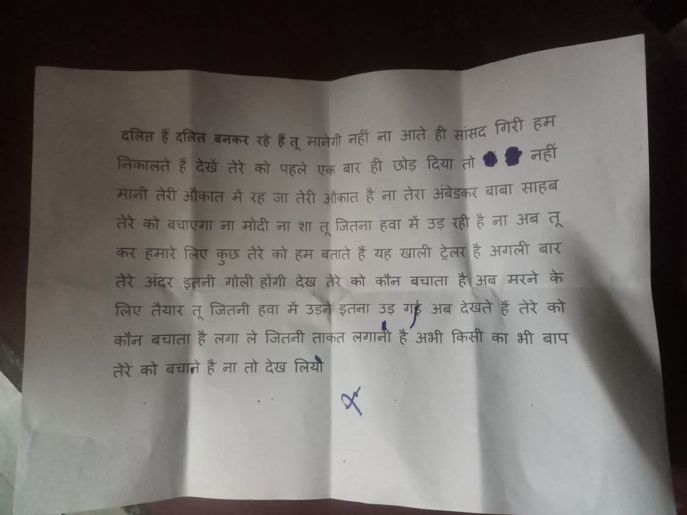 दलित हैं दलित बनकर रहे हैं तू मानेगी नहीं ना आते ही सांसद गिरी हम
निकालते हैं देखें तेरे को पहले एक बार ही छोड़ दिया तो नहीं
मानी तेरी औकात में रह जा तेरी औकात है ना तेरा अंबेडकर बाबा साहब
तेरे को बचाएगा ना मोदी ना शा तू जितना हवा में उड़ रही है ना अब तू
कर हमारे लिए कुछ तेरे को हम बताते हैं यह खाली ट्रेलर है अगली बार
तेरे अंदर इतनी गोली होंगी देख तेरे को कौन बचाता है अब मरने के
लिए तैयार तू जितनी हवा में उड़ने इतना उड़ गई अब देखते हैं तेरे को
कौन बचाता है लगा ले जितनी ताकत लगानी है अभी किसी का भी बाप
तेरे को बचाने है ना तो देख लियो